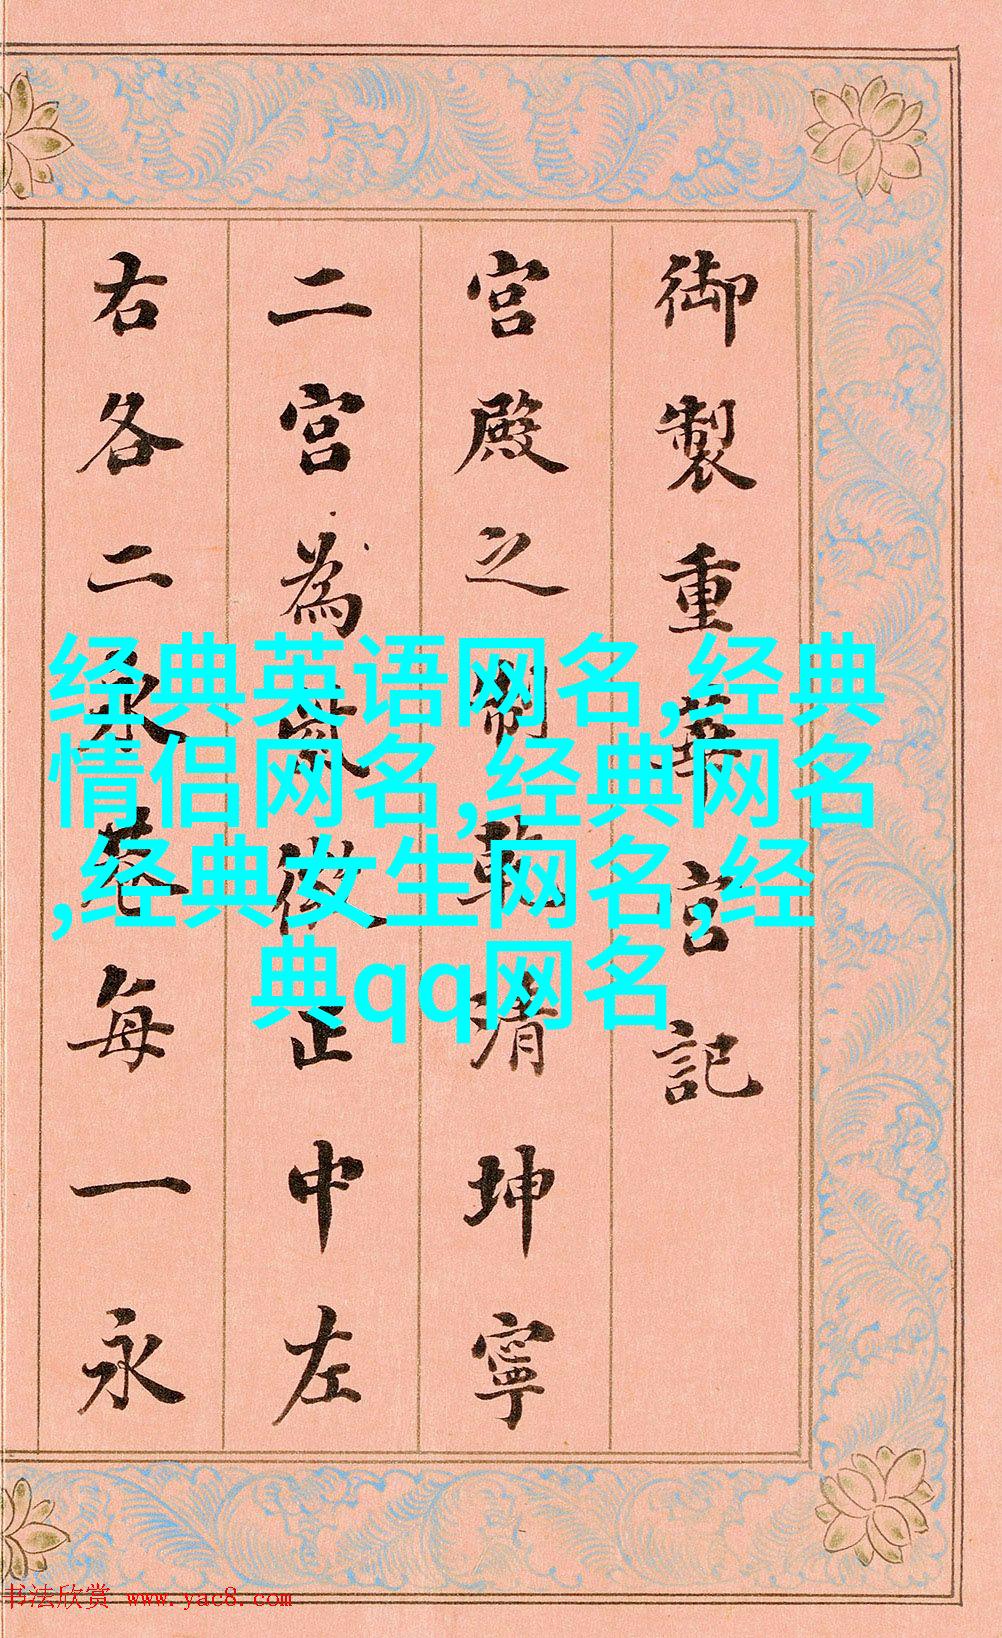 御製重華宮記
宮殿之制乾清坤寧
二宮為紫微正中左
右各二永巷每一永
经典英语网名,经典
情侣网名,经典网名
,经典女生网名,经
典qq网名
书法欣赏 www.yac8.com